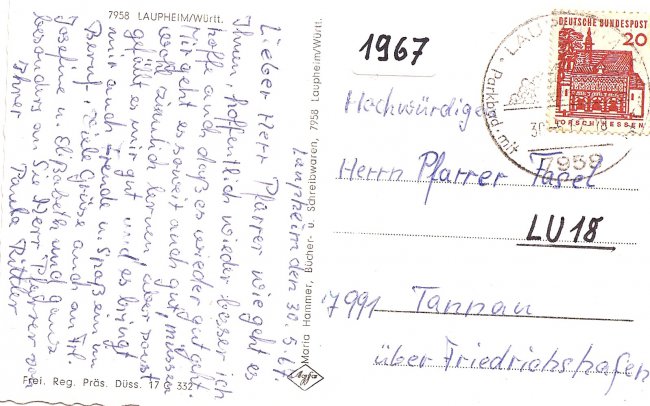 7958 LAUPHEIM/Württ.
Laupheim den 30.5.67.
Lieber Herr Pfarrer wie geht es
Ihnen, hoffentlich wieder besser ich
hoffe auch daß es wieder gut geht.
Mir geht es soweit auch gut, müssen
wohl ziemlich lernen, aber sonst
gefällt es mir gut und es bringt
mir auch Freude u. Spaß ein im
Beruf. Viele Grüße auch an Frl.
Josefine u. Elisabeth und ganz
besonders an Sie Herr Pfarrer von
Ihrer Paula Rittler
Frei. Reg. Präs. Düss. 17 G 332
Maria Hammer, Bücher- u. Schreibwaren, 7958 Laupheim/Württ.
Agfa
1967
DEUTSCHE BUNDESPOST
20
LORSCH/HESSEN
Parkbad mit
7959
Hochwürdige
Herrn Pfarrer Fasel
LU 18
7991 Tannau
über Friedrichshafen